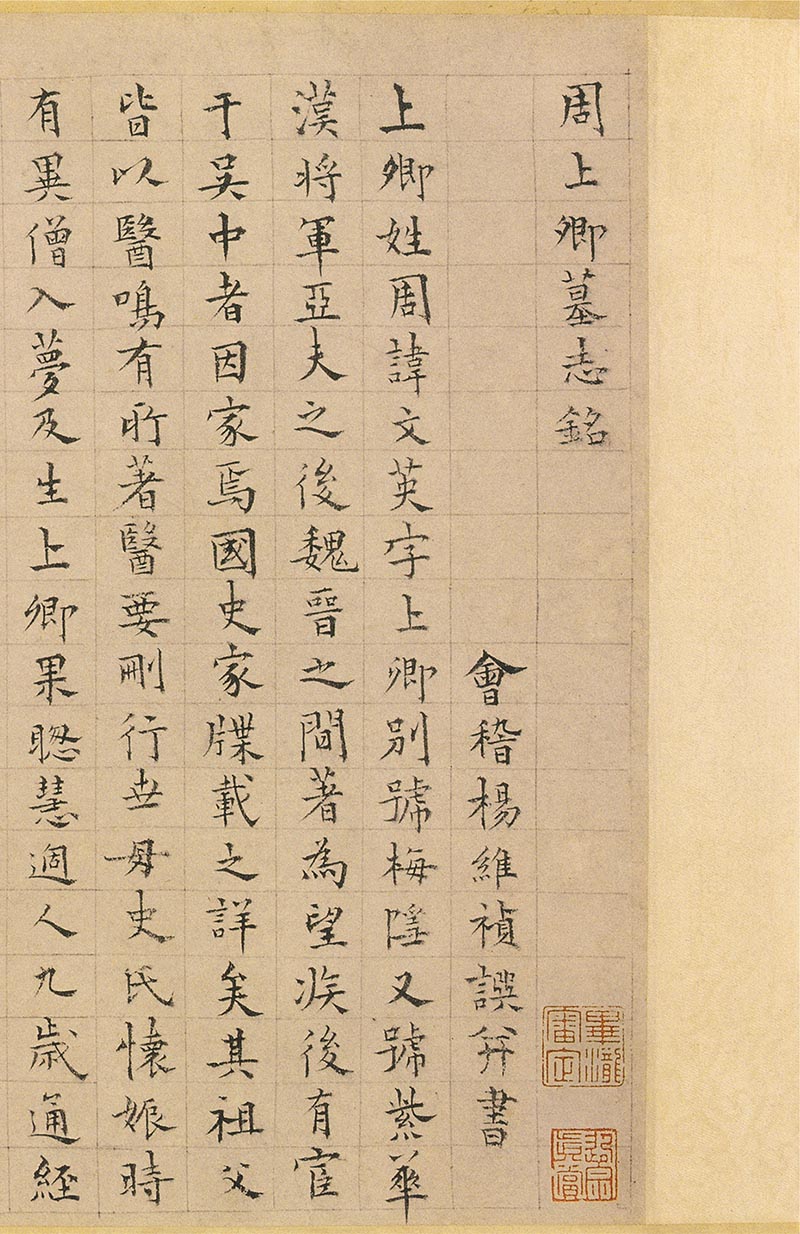 周上卿墓志銘
會稽楊維禎譔并書
上卿姓周諱文英字上卿別號梅隱又號紫華
漢將軍亞夫之後魏晉之間著為望族後有宦
于吳中者因家焉國史家牒載之詳矣其祖父
皆以醫鳴有所著醫要刪行世母史氏懷娠時
有異僧入夢及生上卿果聰慧過人九歲通經
畢瀧審定